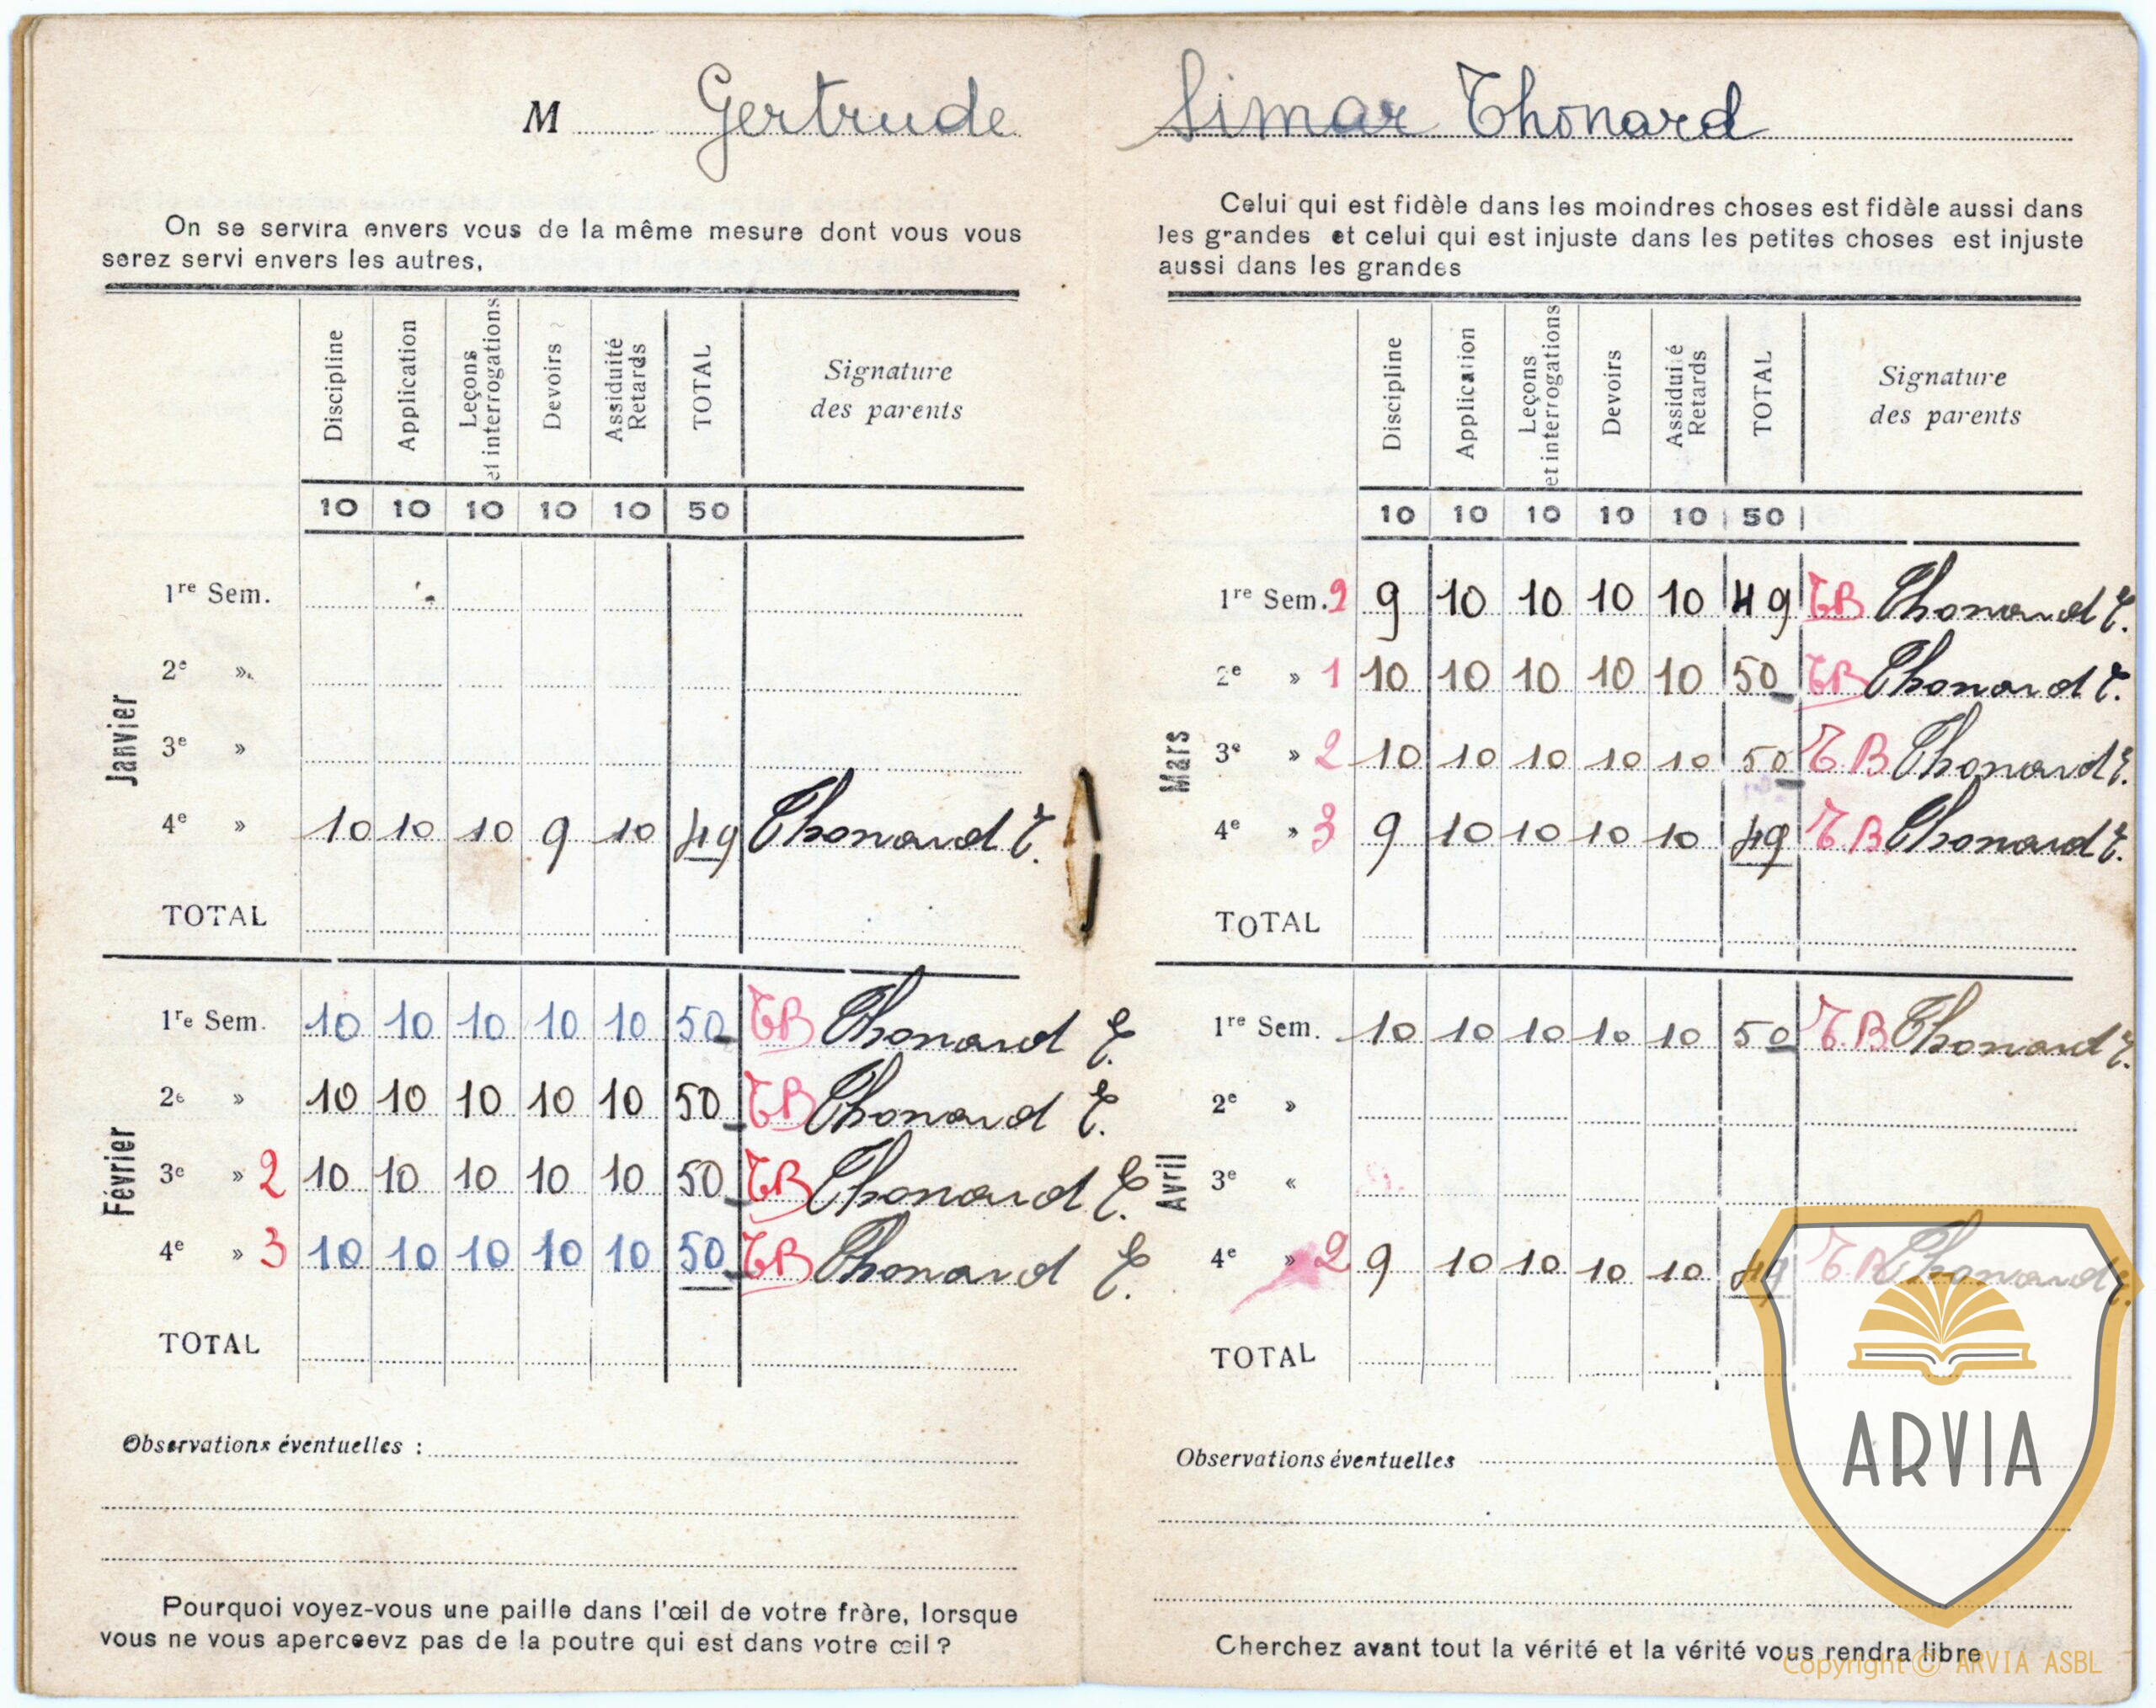 M Gertrude
On se servira envers vous de la même mesure dont vous vous
serez servi envers les autres,
Discipline
Application
Leçons
et interrogations
Devoirs
Assiduité
Retards
TOTAL
Signature
des parents
10 10 10 10 10 50
Janvier
1re Sem.
2e »
3e »
4e » 10 10 10 9 10 49 Thonard
TOTAL
Février
1re Sem. 10 10 10 10 10 50 TB Thonard
2e » 10 10 10 10 10 50 TB Thonard
3e » 2 10 10 10 10 10 50 TB Thonard
4e » 3 10 10 10 10 10 50 TB Thonard
TOTAL
Observations éventuelles :
Pourquoi voyez-vous une paille dans l'œil de votre frère, lorsque
vous ne vous aperceevz pas de la poutre qui est dans votre œil ?
Simar Thonard
Celui qui est fidèle dans les moindres choses est fidèle aussi dans
les grandes et celui qui est injuste dans les petites choses est injuste
aussi dans les grandes
Discipline
Application
Leçons
et interrogations
Devoirs
Assiduité
Retards
TOTAL
Signature
des parents
10 10 10 10 10 50
Mars
1re Sem. 2 9 10 10 10 10 49 TB Thonard
2e » 1 10 10 10 10 10 50 TB Thonard
3e » 2 10 10 10 10 10 50 TB Thonard
4e » 3 9 10 10 10 10 49 TB Thonard
TOTAL
Avril
1re Sem. 10 10 10 10 10 50 TB Thonard
2e »
3e «
4e » 2 9 10 10 10 10 49 TB Thonard
TOTAL
Observations éventuelles
Cherchez avant tout la vérité et la vérité vous rendra libre
ARVIA
Copyright © ARVIA ASBL